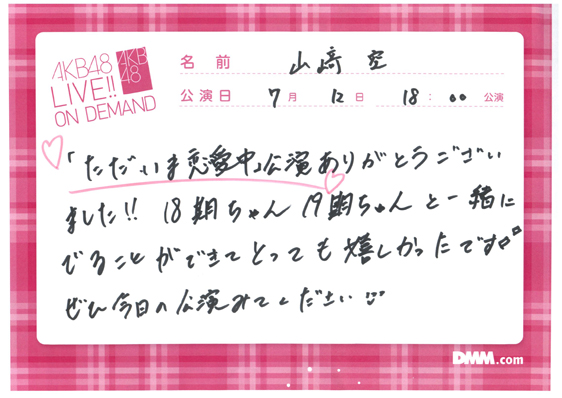 AKB48
LIVE!!
ON DEMAND
AKB
48
名前 山﨑 空
公演日 7月 12日 18:00 公演
「ただいま恋愛中」公演ありがとうござい
ました!! 18期ちゃん 19期ちゃんと一緒に
でることができてとっても嬉しかったです
ぜひ今日の公演みてください
DMM.com